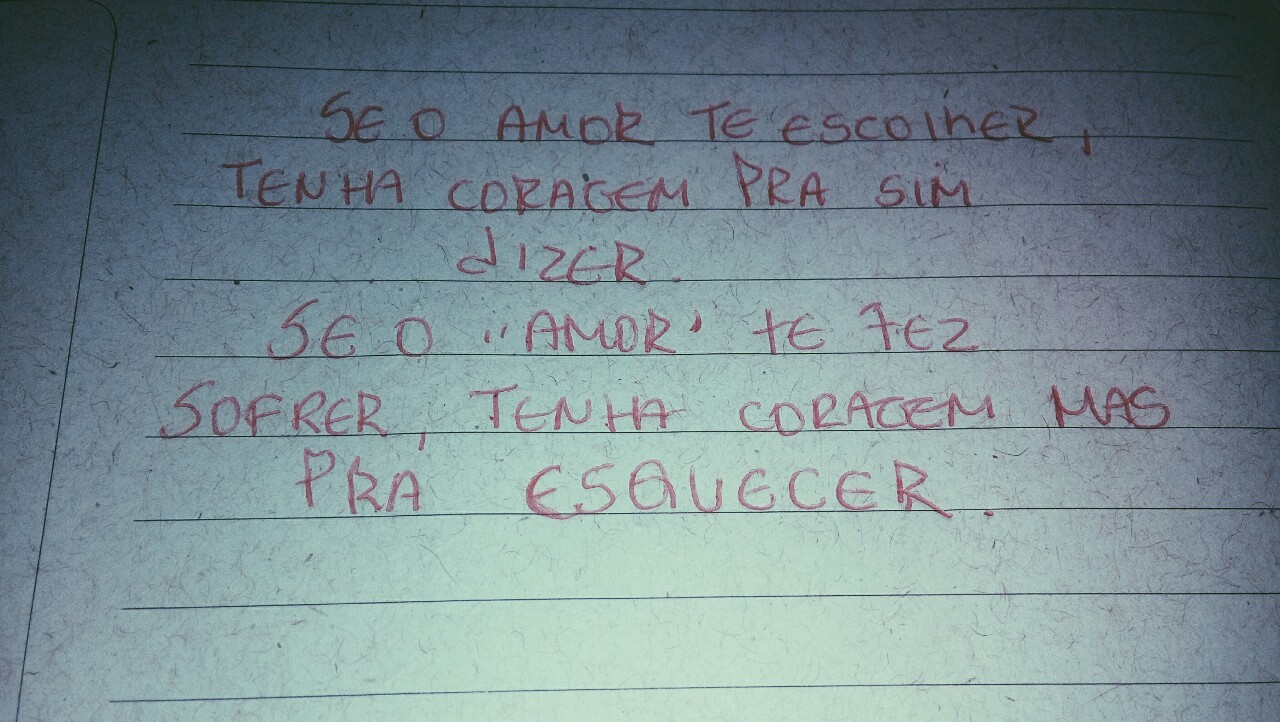 SE O AMOR TE ESCOlhER,
TENHA CORAGEM PRA SIM
dIZER.
SE O "AMOR" tE FEZ
SOFRER, TENHA CORAGEM MAS
PRA ESQUECER.